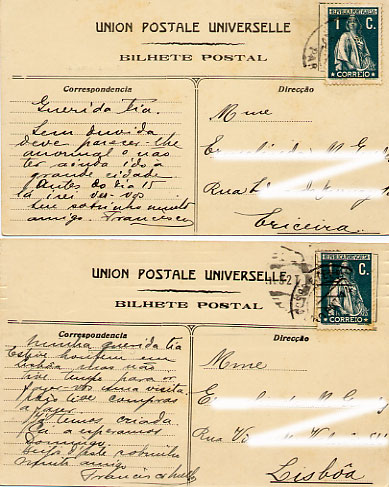 UNION POSTALE UNIVERSELLE
BILHETE POSTAL
REPUBLICA PORTUGUESA
1 C.
CORREIO
Correspondencia
Direcção
Querida Tia.
Sem duvida
deve parecer-lhe
anormal o não
ter ainda ido á
grande cidade
Antes do dia 15
lá irei ver-vos
seu sobrinho muito
amigo Francisco
Mme
Rua
Ericeira.
UNION POSTALE UNIVERSELLE
BILHETE POSTAL
REPUBLICA PORTUGUESA
1 C.
CORREIO
Correspondencia
Direcção
Minha querida tia
Estive hontem em
Lisboa mas não
tive tempo para
fazer-vos uma visita
pois tive compras
a fazer
Já temos criada
Lá a esperamos
Domingo.
sobrinho
muito amigo
Francisco
Mme
Rua
Lisbôa